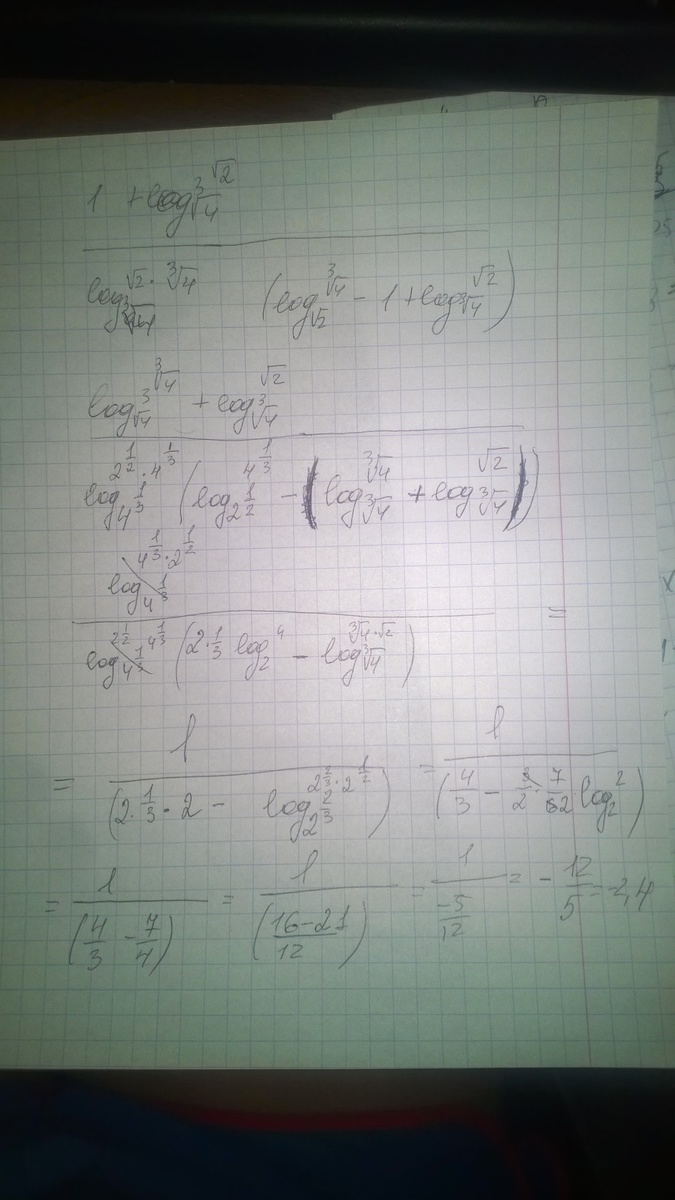 1 + log_∛4 √2
log_∛4 √2 · ∛4 (log_√2 ∛4 - 1 + log_∛4 √2)
log_∛4 ∛4 + log_∛4 √2
log_4^(1/3) 2^(1/2) · 4^(1/3) (log_2^(1/2) 4^(1/3) - (log_∛4 ∛4 + log_∛4 √2))
log_4^(1/3) 4^(1/3) · 2^(1/2)
log_4^(1/3) 2^(1/2) 4^(1/3) (2 · 1/3 log_2 4 - log_∛4 ∛4 · √2) =
= 1 / (2 · 1/3 · 2 - log_2^(2/3) 2^(2/3) · 2^(1/2)) = 1 / (4/3 - 3/2 · 7/62 log_2 2)
= 1 / (4/3 - 7/4) = 1 / ((16-21)/12) = 1 / (-5/12) = - 12/5 = -2,4